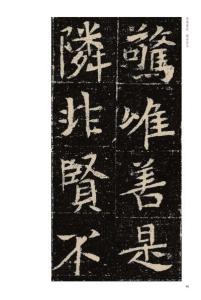 驚唯善是
隣非賢不